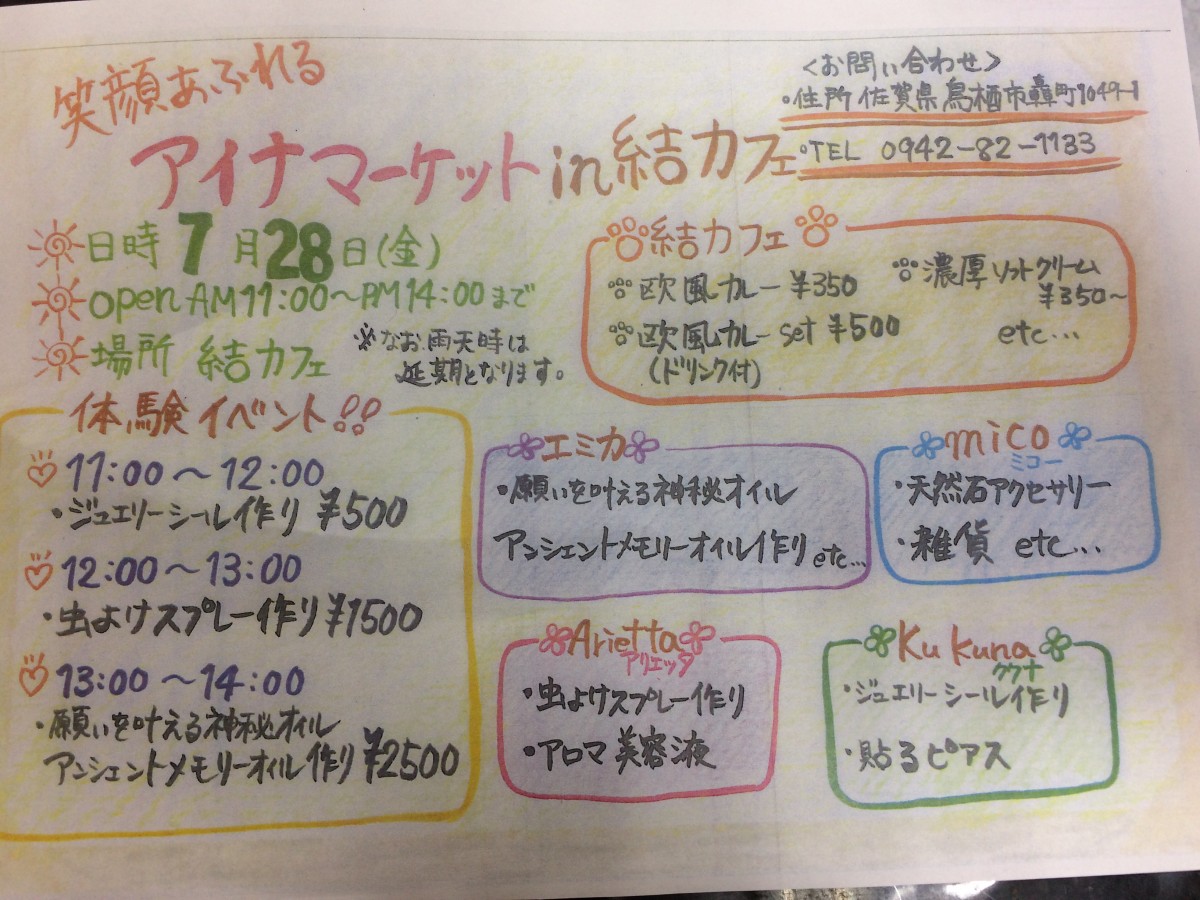 笑顔あふれる
アイナマーケット in 結カフェ
<お問い合わせ>
・住所 佐賀県鳥栖市轟町1049-1
・TEL 0942-82-1133
日時 7月28日(金)
open AM11:00～PM14:00まで
場所 結カフェ
※なお、雨天時は
延期となります。
結カフェ
欧風カレー ¥350
濃厚ソフトクリーム
¥350～
欧風カレー set ¥500
(ドリンク付)
etc...
体験イベント!!
11:00～12:00
・ジュエリーシール作り ¥500
12:00～13:00
・虫よけスプレー作り ¥1500
13:00～14:00
・願いを叶える神秘オイル
アンシェントメモリーオイル作り ¥2500
エミカ
・願いを叶える神秘オイル
アンシェントメモリーオイル作り etc...
mico
ミコー
・天然石アクセサリー
・雑貨 etc...
Arietta
アリエッタ
・虫よけスプレー作り
・アロマ美容液
Ku kuna
ククナ
・ジュエリーシール作り
・貼るピアス